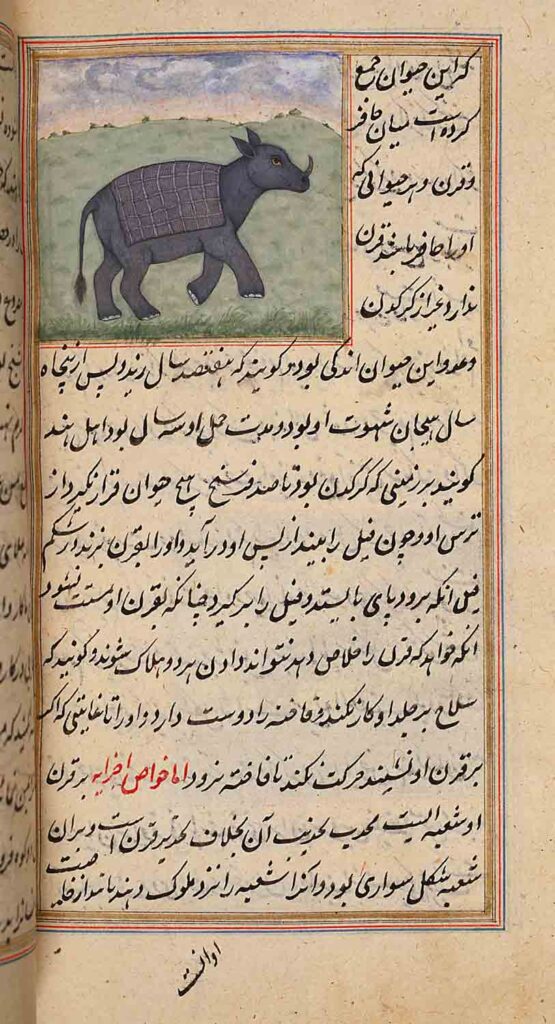 که این حیوان جمع
کرده است میان حافر
و قرن و هر حیوانی که
او را حافر باشد قرن
ندارد غیر از کرکدن
و عدو این حیوان اندکی بود و کویند که هفتصد سال زید و پس از پنجاه
سال هیجان شهوت او بود و مدت حمل او سه سال بود اهل هند
کویند بر زمینی که کرکدن بود تا صد فرسنج هیچ حیوان قرار نکیرد از
ترس او و چون فیل را بیند از پس او در آید و او را بقرن بزند در شکم
فیل انکه برود پای بایستد و فیل را بر کیرد چنانکه بقرن او
انکه خواهد که قرن را خلاص دهد نتواند دادن هر دو هلاک شوند و کویند که
سلاح بر جلد او کار نکند و فاخته را دوست دارد و او را تا غایتی که اکر
بر قرن او نشیند حرکت نکند تا فاخته برود اما خواص اجزایه بر قرن
او شعبه ایست محدب تحدیب آن بخلاف تحدیب قرن است و بر آن
شعبه شکل سواری بود و آن شعبه را نزد ملوک دهند باشد از خاصیت
او آنست